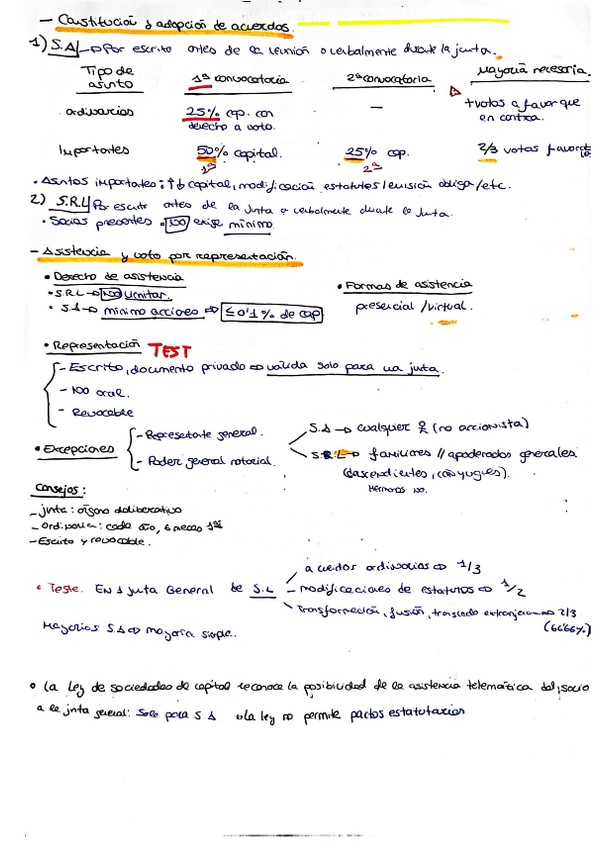 - Constitución y adopción de acuerdos.
1) S.A → Por escrito antes de la reunión o verbalmente durante la junta.
Tipo de asunto 1ª convocatoria 2ª convocatoria Mayoría necesaria.
Ordinarios 25% cap. con derecho a voto. — + votos a favor que en contra.
Importantes 50% capital. 25% cap. 2/3 votos favor
1ª 2ª
• Asuntos importantes: ↑↓ capital, modificación estatutos / emisión obliga / etc.
2) S.R.L Por escrito antes de la Junta o verbalmente durante la Junta.
• Socios presentes • NO exige mínimo
- Asistencia y voto por representación.
• Derecho de asistencia
• S.R.L → NO limitar.
• S.A → mínimo acciones ⇒ ≤ 0'1% de cap
• Formas de asistencia
presencial / virtual.
• Representación TEST
- Escrito, documento privado ⇒ válida solo para una junta.
- NO oral.
- Revocable
• Excepciones
- Representante general.
- Poder general notarial.
S.A → cualquier (no accionista)
S.R.L → familiares // apoderados generales.
(descendientes, cónyuges).
Hermanos NO.
Consejos:
- junta: órgano deliberativo
- ordinaria: cada año, 6 meses 1os
- Escrito y revocable.
• Teste. En 1 Junta General de S.L
acuerdos ordinarios ⇒ 1/3
- modificaciones de estatutos ⇒ 1/2
Transformación, fusión, traslado extranjero ⇒ 2/3
(66'66%)
Mayorías S.A ⇒ mayoría simple.
• La Ley de sociedades de capital reconoce la posibilidad de la asistencia telemática del socio
a la junta general: Solo para S A • La ley no permite pactos estatutarios